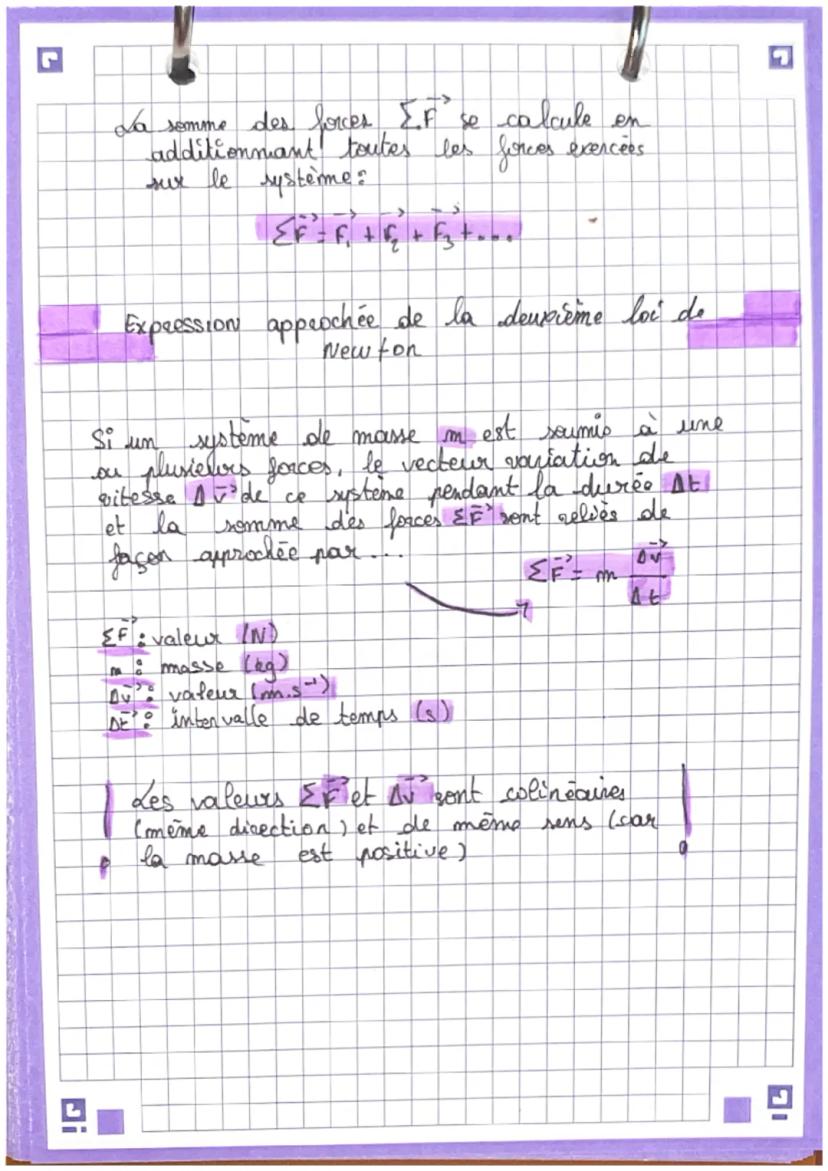 La somme des forces ΣF⃗ se calcule en
additionnant toutes les forces éxercées
sur le système :
ΣF⃗ = F⃗₁ + F⃗₂ + F⃗₃ + ...
Expression approchée de la deuxième loi de
Newton
Si un système de masse m est soumis à une
ou plusieurs forces, le vecteur variation de
vitesse Δv⃗ de ce système pendant la durée Δt
et la somme des forces ΣF⃗ sont reliés de
façon approchée par ...
ΣF⃗ = m Δv⃗ / Δt
ΣF⃗ : valeur (N)
m : masse (kg)
Δv⃗ : valeur (m.s⁻¹)
Δt⃗ : intervalle de temps (s)
! Les valeurs ΣF⃗ et Δv⃗ sont colinéaires !
(même direction) et de même sens (car
la masse est positive)